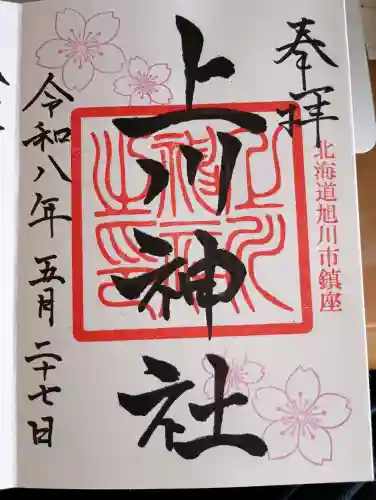 奉拝
北海道旭川市鎮座
上川神社
上川神社之印
令和八年五月二十七日